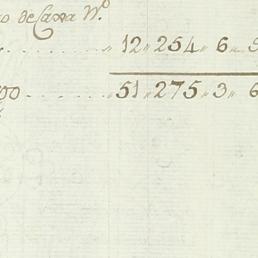 de Casa N.º
12 " 254 " 6
51 " 275 " 3 " 6